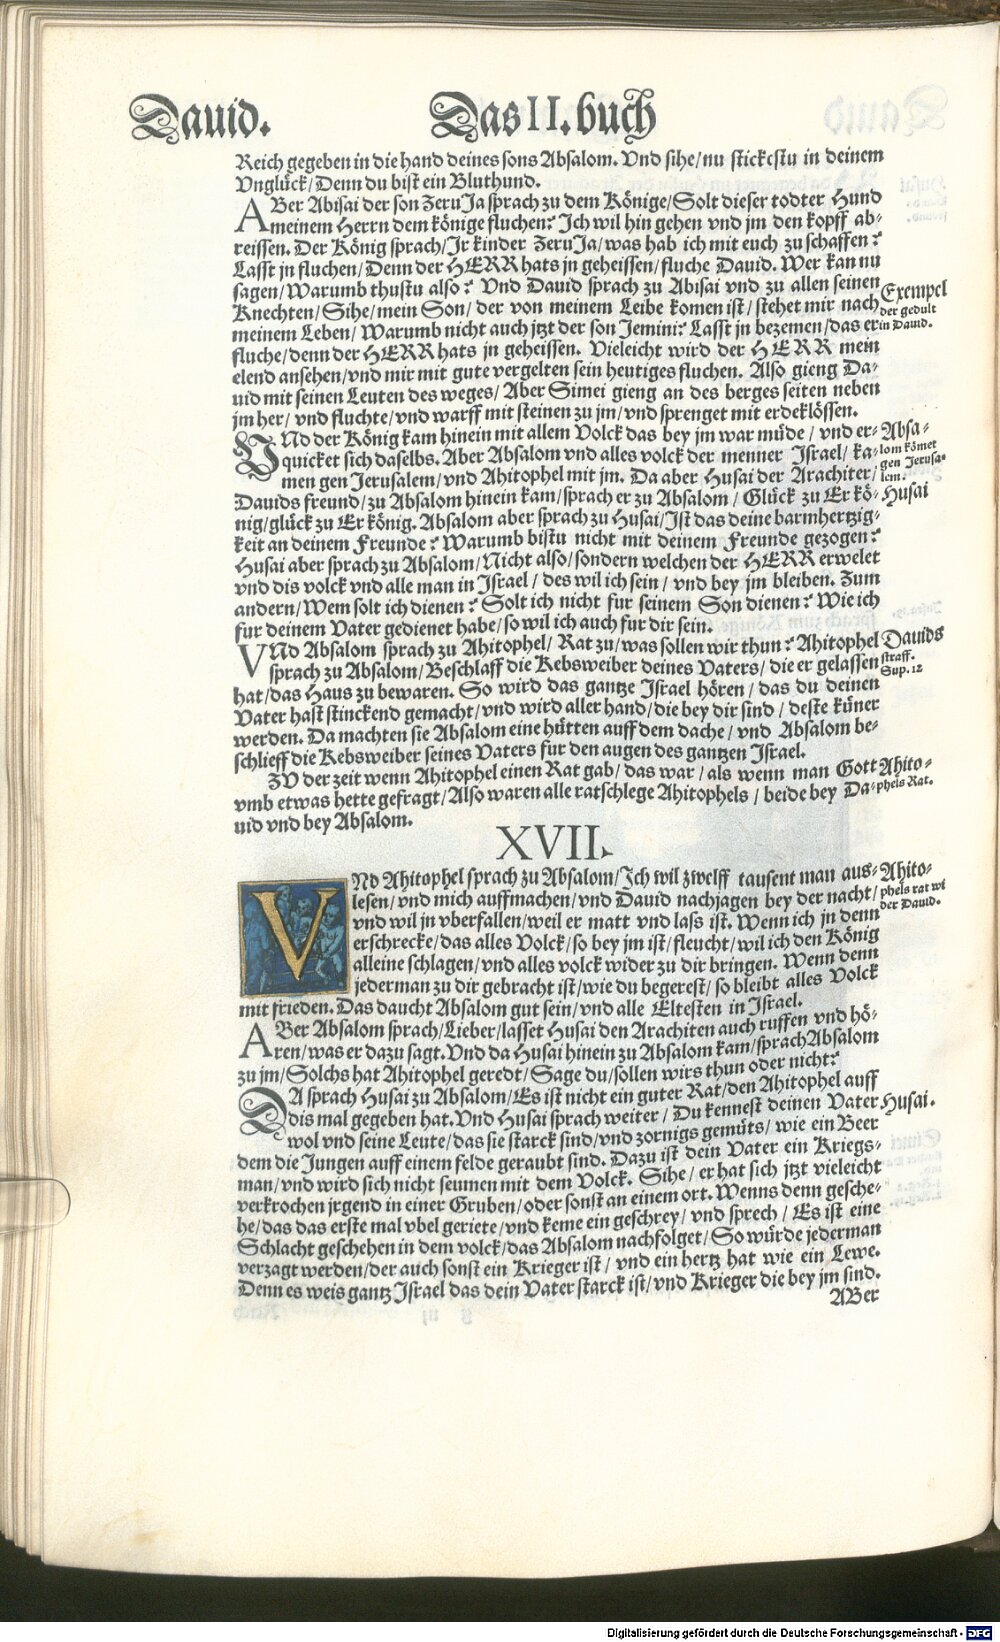 Dauid.
Das II. buch
Reich gegeben in die hand deines sons Absalom. Vnd sihe/ nu stickestu in deinem
Vnglück/ Denn du bist ein Bluthund.
ABer Abisai der son ZeruJa sprach zu dem Könige/ Solt dieser todter Hund
meinem Herrn dem könige fluchen? Ich wil hin gehen vnd jm den kopff ab-
reissen. Der König sprach/ Jr kinder ZeruJa/ was hab ich mit euch zu schaffen?
Lasst jn fluchen/ Denn der HERR hats jn geheissen/ fluche Dauid. Wer kan nu
sagen/ Warumb thustu also? Vnd Dauid sprach zu Abisai vnd zu allen seinen
Knechten/ Sihe/ mein Son/ der von meinem Leibe komen ist/ stehet mir nach
meinem Leben/ Warumb nicht auch jtzt der son Jemini? Lasst jn bezemen/ das er
fluche/ denn der HERR hats jn geheissen. Vieleicht wird der HERR mein
elend ansehen/ vnd mir mit gute vergelten sein heutiges fluchen. Also gieng Da-
uid mit seinen Leuten des weges/ Aber Simei gieng an des berges seiten neben
jm her/ vnd fluchte/ vnd warff mit steinen zu jm/ vnd sprenget mit erdeklössen.
Exempel
der gedult
in Dauid.
VNd der König kam hinein mit allem Volck das bey jm war müde/ vnd er-
quicket sich daselbs. Aber Absalom vnd alles volck der menner Israel/ ka-
men gen Jerusalem/ vnd Ahitophel mit jm. Da aber Husai der Arachiter/
Dauids freund/ zu Absalom hinein kam/ sprach er zu Absalom/ Glück zu Er kö-
nig/ glück zu Er könig. Absalom aber sprach zu Husai/ Ist das deine barmhertzig-
keit an deinem Freunde? Warumb bistu nicht mit deinem Freunde gezogen?
Husai aber sprach zu Absalom/ Nicht also/ sondern welchen der HERR erwelet
vnd dis volck vnd alle man in Israel/ des wil ich sein/ vnd bey jm bleiben. Zum
andern/ Wem solt ich dienen? Solt ich nicht fur seinem Son dienen? Wie ich
fur deinem Vater gedienet habe/ so wil ich auch fur dir sein.
Absa-
lom kömet
gen Jerusa-
lem.
Husai
VNd Absalom sprach zu Ahitophel/ Rat zu/ was sollen wir thun? Ahitophel
sprach zu Absalom/ Beschlaff die Kebsweiber deines Vaters/ die er gelassen
hat/ das Haus zu bewaren. So wird das gantze Israel hören/ das du deinen
Vater hast stinckend gemacht/ vnd wird aller hand/ die bey dir sind/ deste küner
werden. Da machten sie Absalom eine hütten auff dem dache/ vnd Absalom be-
schlieff die Kebsweiber seines Vaters fur den augen des gantzen Israel.
Dauids
straff.
Sup. 12
ZV der zeit wenn Ahitophel einen Rat gab/ das war/ als wenn man Gott
vmb etwas hette gefragt/ Also waren alle ratschlege Ahitophels/ beide bey Da-
uid vnd bey Absalom.
Ahito-
phels Rat.
XVII.
VNd Ahitophel sprach zu Absalom/ Ich wil zwelff tausent man aus-
lesen/ vnd mich auffmachen/ vnd Dauid nachjagen bey der nacht/
vnd wil jn vberfallen/ weil er matt vnd lass ist. Wenn ich jn denn
erschrecke/ das alles Volck/ so bey jm ist/ fleucht/ wil ich den König
alleine schlagen/ vnd alles volck wider zu dir bringen. Wenn denn
jederman zu dir gebracht ist/ wie du begerest/ so bleibt alles Volck
mit frieden. Das daucht Absalom gut sein/ vnd alle Eltesten in Israel.
Ahito-
phels rat wi
der Dauid.
ABer Absalom sprach/ Lieber/ lasset Husai den Arachiten auch ruffen vnd hö-
ren/ was er dazu sagt. Vnd da Husai hinein zu Absalom kam/ sprach Absalom
zu jm/ Solchs hat Ahitophel geredt/ Sage du/ sollen wirs thun oder nicht?
DA sprach Husai zu Absalom/ Es ist nicht ein guter Rat/ den Ahitophel auff
dis mal gegeben hat. Vnd Husai sprach weiter/ Du kennest deinen Vater
wol vnd seine Leute/ das sie starck sind/ vnd zornigs gemüts/ wie ein Beer
dem die Jungen auff einem felde geraubt sind. Dazu ist dein Vater ein Kriegs-
man/ vnd wird sich nicht seumen mit dem Volck. Sihe/ er hat sich jtzt vieleicht
verkrochen jrgend in einer Gruben/ oder sonst an einem ort. Wenns denn gesche-
he/ das das erste mal vbel geriete/ vnd keme ein geschrey/ vnd sprech/ Es ist eine
Schlacht geschehen in dem volck/ das Absalom nachfolget/ So würde jederman
verzagt werden/ der auch sonst ein Krieger ist/ vnd ein hertz hat wie ein Lewe.
Denn es weis gantz Israel das dein Vater starck ist/ vnd Krieger die bey jm sind.
Husai.
ABer
Digitalisierung gefördert durch die Deutsche Forschungsgemeinschaft - DFG